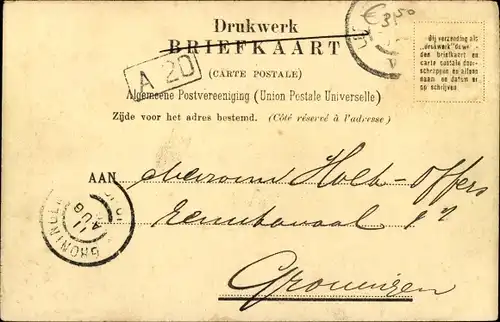 Drukwerk
BRIEFKAART
€ 3,50
A 20
(CARTE POSTALE)
Algemeene Postvereeniging (Union Postale Universelle)
Zijde voor het adres bestemd. (Côté réservé à l'adresse)
Bij verzending als
„drukwerk" de woor-
den briefkaart en
carte postale door-
schrappen en alleen
naam en datum er
op schrijven.
AAN Mevrouw Holk-Offers
Groningen
GRONINGEN
11
AUG